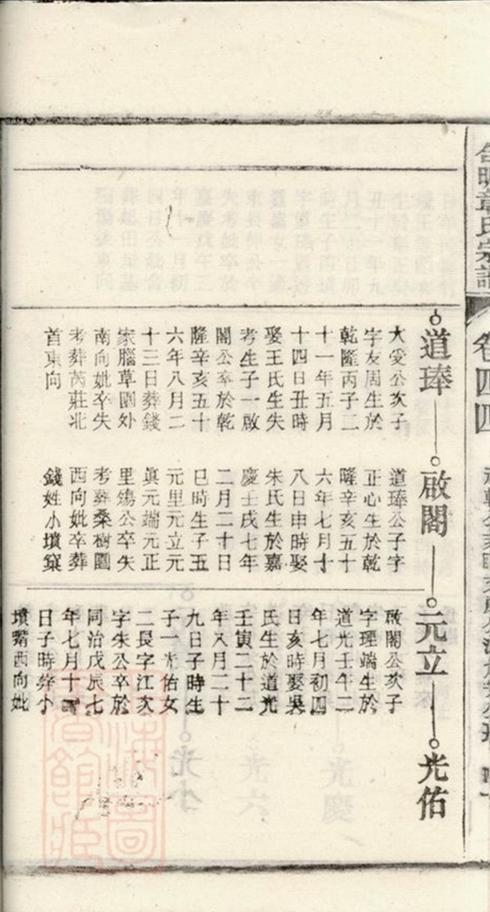 章氏宗譜
卷四四
道琫
啟閣
元立
光佑
大愛公次子
字友周生於
乾隆丙子二
十一年五月
十四日丑時
娶王氏生失
考生子一啟
閣公卒於乾
隆辛亥五十
六年八月二
十三日葬錢
家腦草園外
南向妣卒失
考葬芮莊北
首東向
道琫公子字
正心生於乾
隆辛亥五十
六年七月十
八日申時娶
朱氏生於嘉
慶壬戌七年
二月二十日
巳時生子五
元里元立元
真元端元正
里殤公卒失
考葬桑樹園
西向妣卒葬
錢姓小墳窠
啟閣公次子
字理端生於
道光壬午二
年七月初四
日亥時娶吳
氏生於道光
壬寅二十二
年八月二十
九日子時生
子一光佑女
二長字江次
字朱公卒於
同治戊辰七
年七月十
日子時葬小
墳嘴西向妣